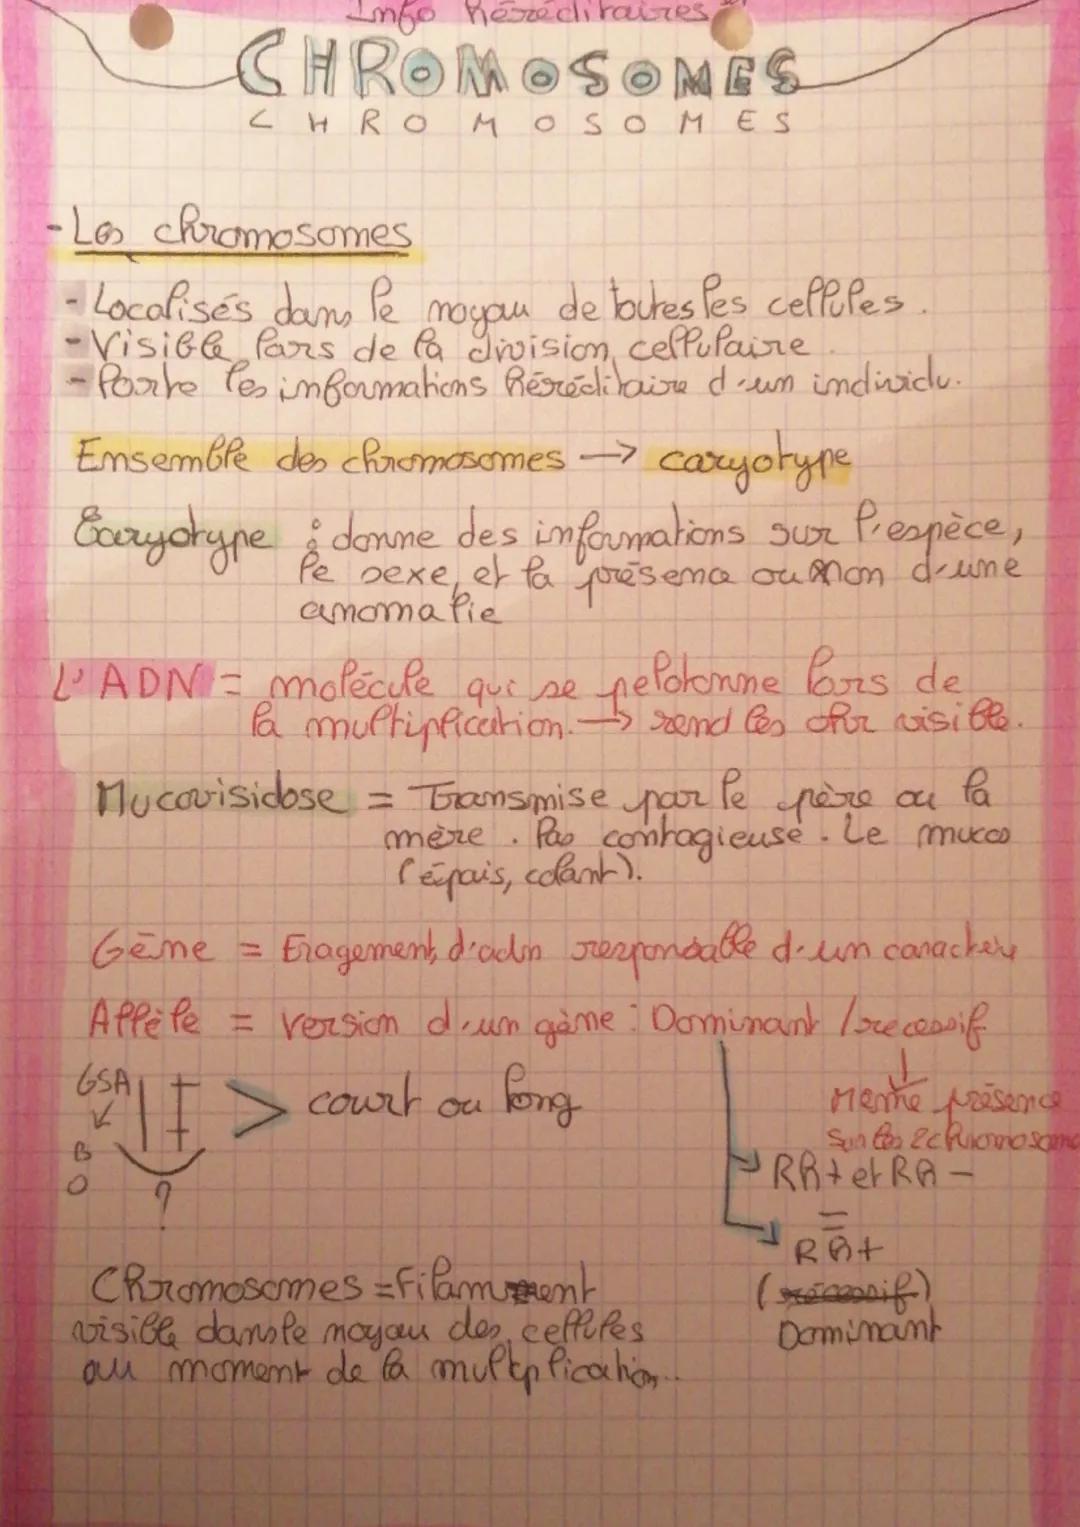 Info héréditaires
CHROMOSOMES
CHROMOSOMES
- Les chromosomes
- Localisés dans le noyau de toutes les cellules.
- Visible lors de la division cellulaire.
- Porte les informations héréditaire d'un individu.
Ensemble des chromosomes → caryotype
Caryotype : donne des informations sur l'espèce,
le sexe, et la présence ou non d'une
anomalie
L'ADN = molécule qui se pelotonne lors de
la multiplication. → rend les chr visible.
Mucovisidose = Transmise par le père ou la
mère. Pas contagieuse. Le mucos
(épais, colant).
Gène = Fragement d'adn responsable d'un caractère
Allèle = version d'un gène : Dominant / recessif
GSA
> court ou long
B
O
?
Meme présence
sur les 2 chromosome
RH+ et RH -
=
RH+
(récessif)
Dominant
Chromosomes = Filament
visible dans le noyau des cellules
au moment de la multplication..